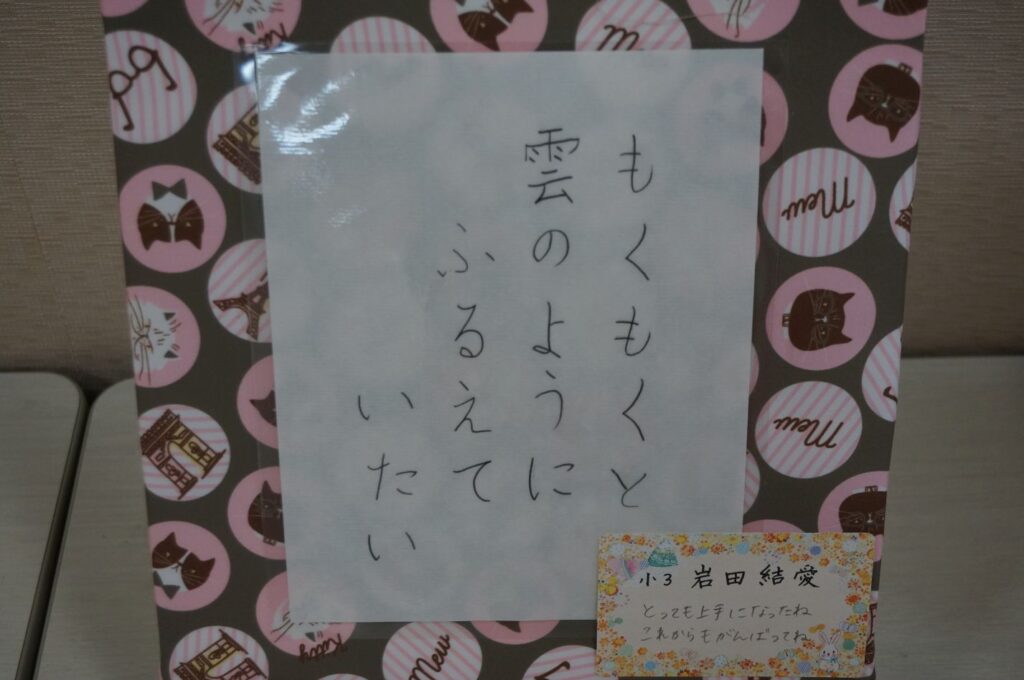 もくもくと
雲のように
ふるえて
いたい
小3 岩田結愛
とっても上手になったね
これからもがんばってね
Kitty
Mew
Mew
Kitty
Mew